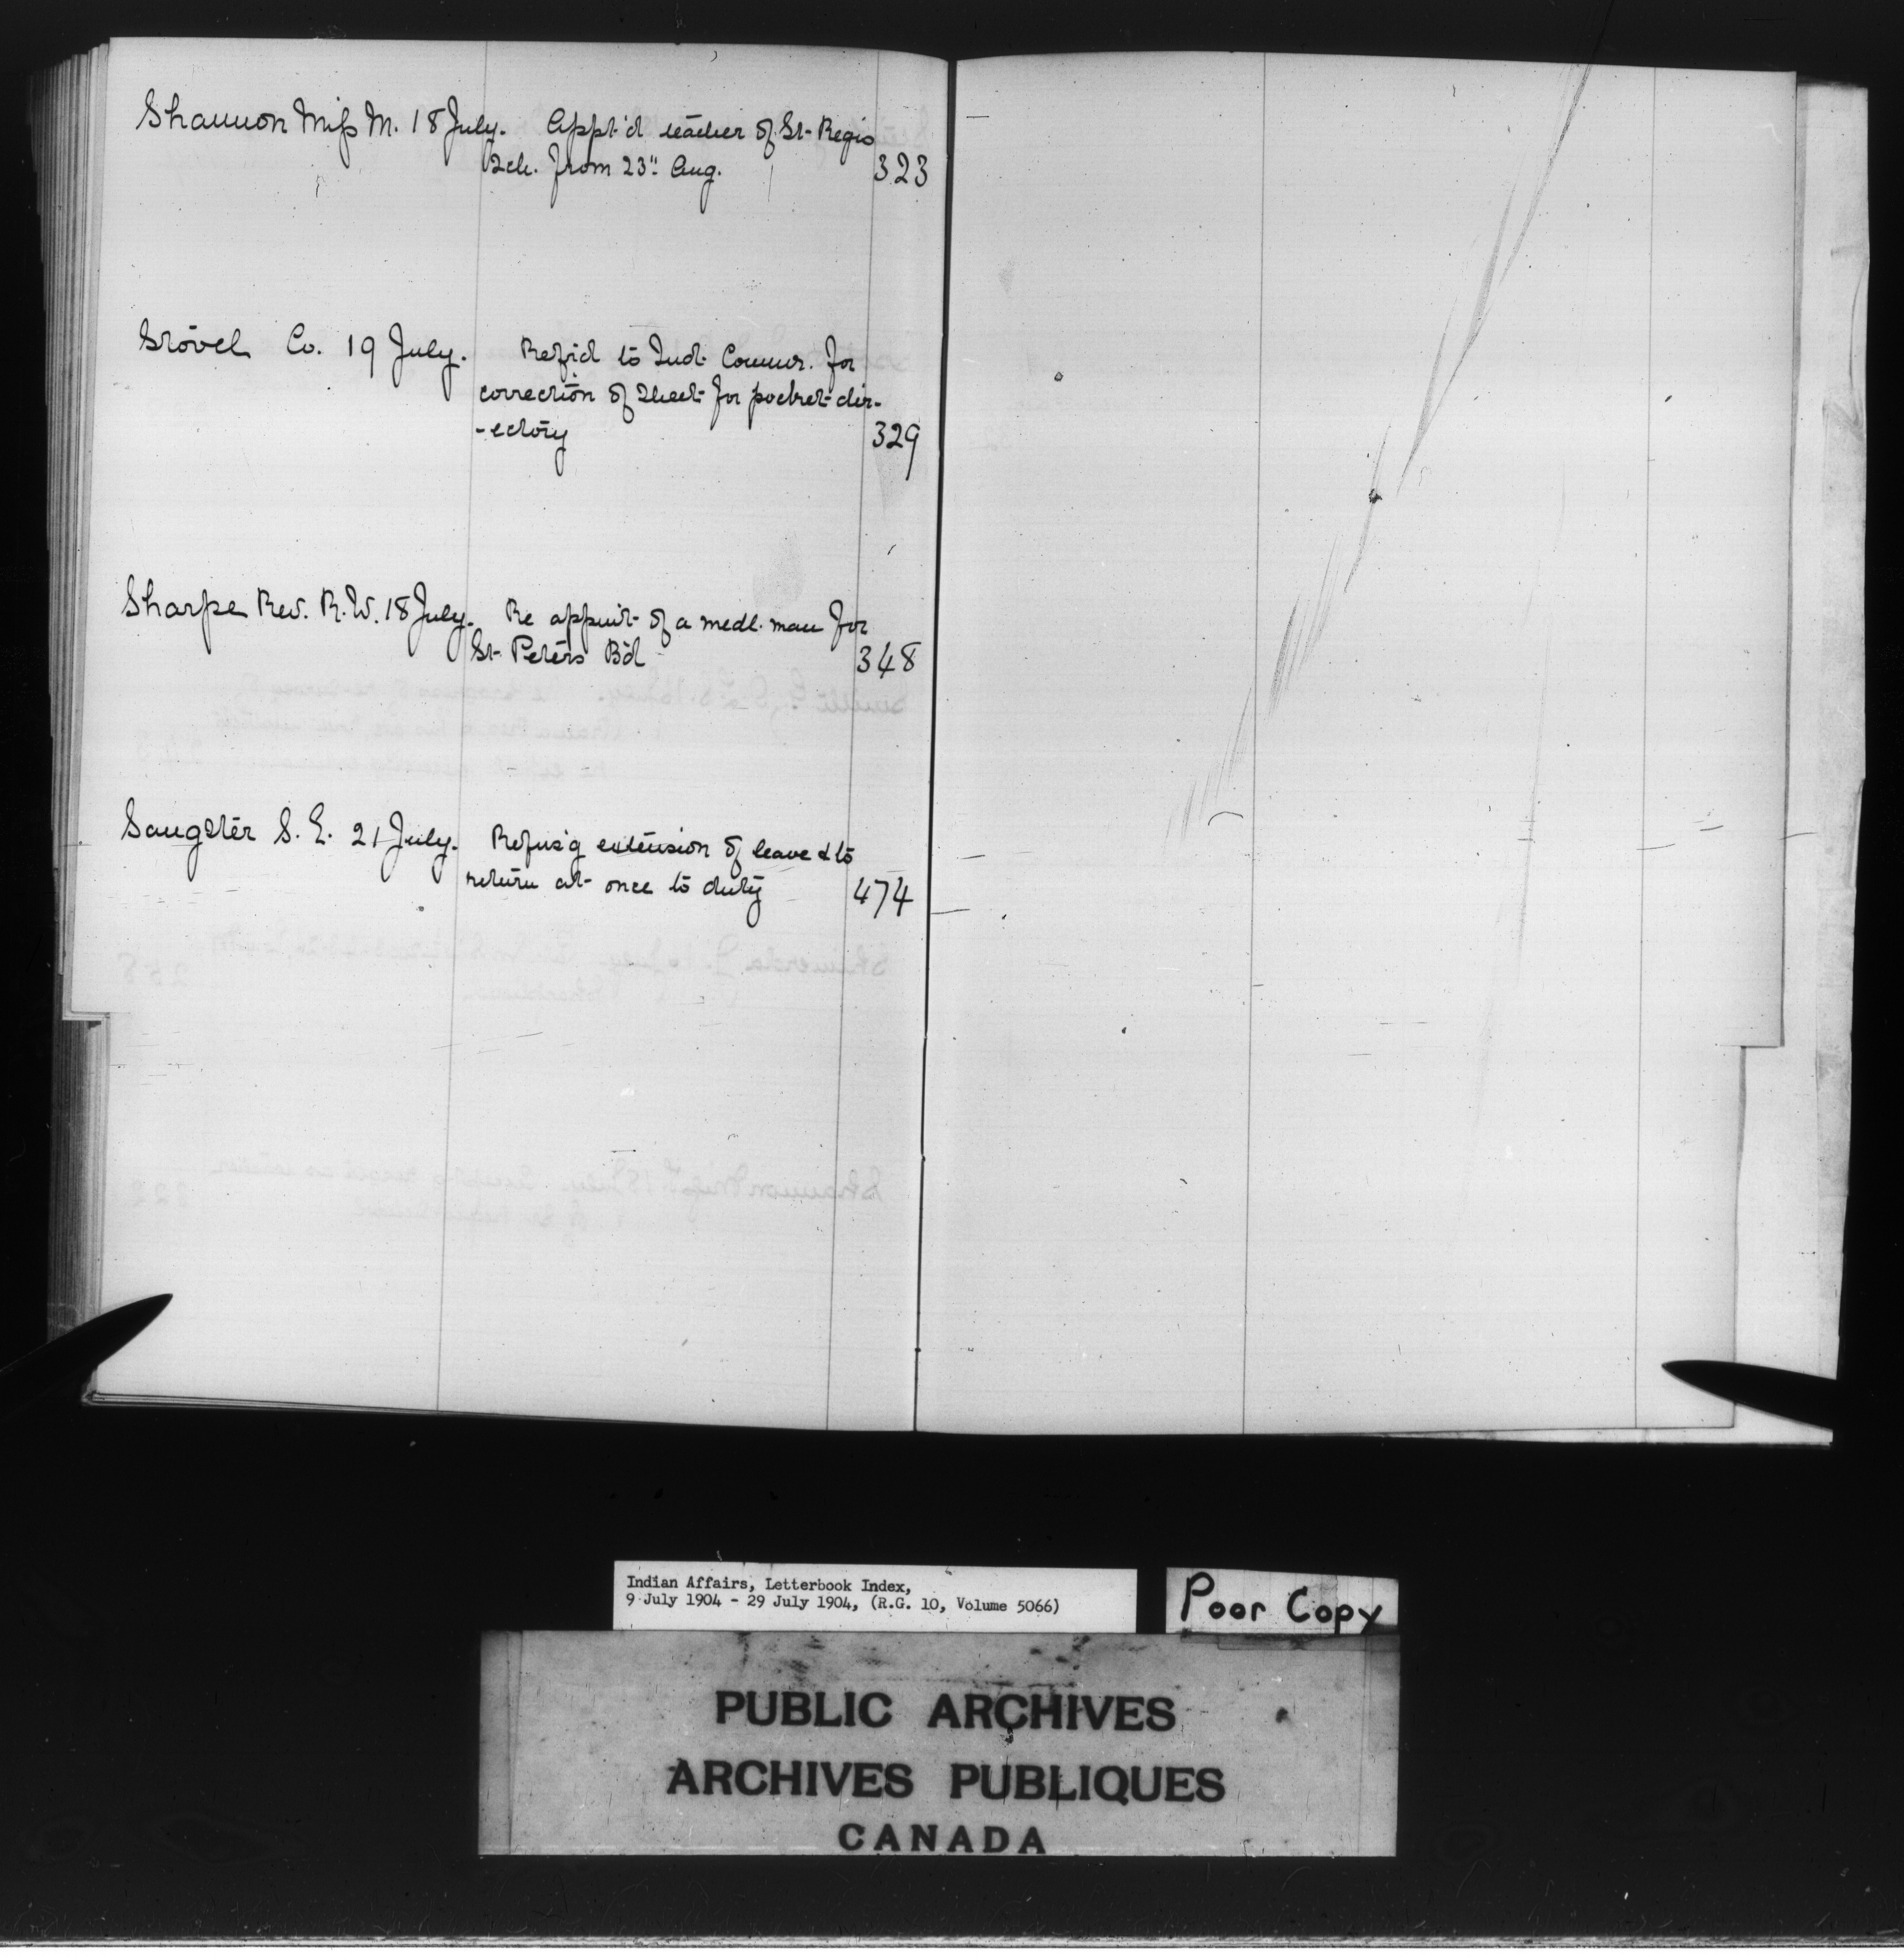 Shannon Miss M. 18 July. Appt'd teacher of St. Regis
Sch. from 23" Aug. 323
Stovel Co. 19 July. Ref'd to Ind. Commr. for
correction of sheet for pocket dir-
-ectory 329
Sharpe Rev. R.W. 18 July. Re appmt. of a medl. man for
St. Peters Bd 348
Sangster S. E. 21 July. Refus'g extension of leave & to
return at once to duty 474
Indian Affairs, Letterbook Index,
9 July 1904 - 29 July 1904, (R.G. 10, Volume 5066)
Poor Copy
PUBLIC ARCHIVES
ARCHIVES PUBLIQUES
CANADA